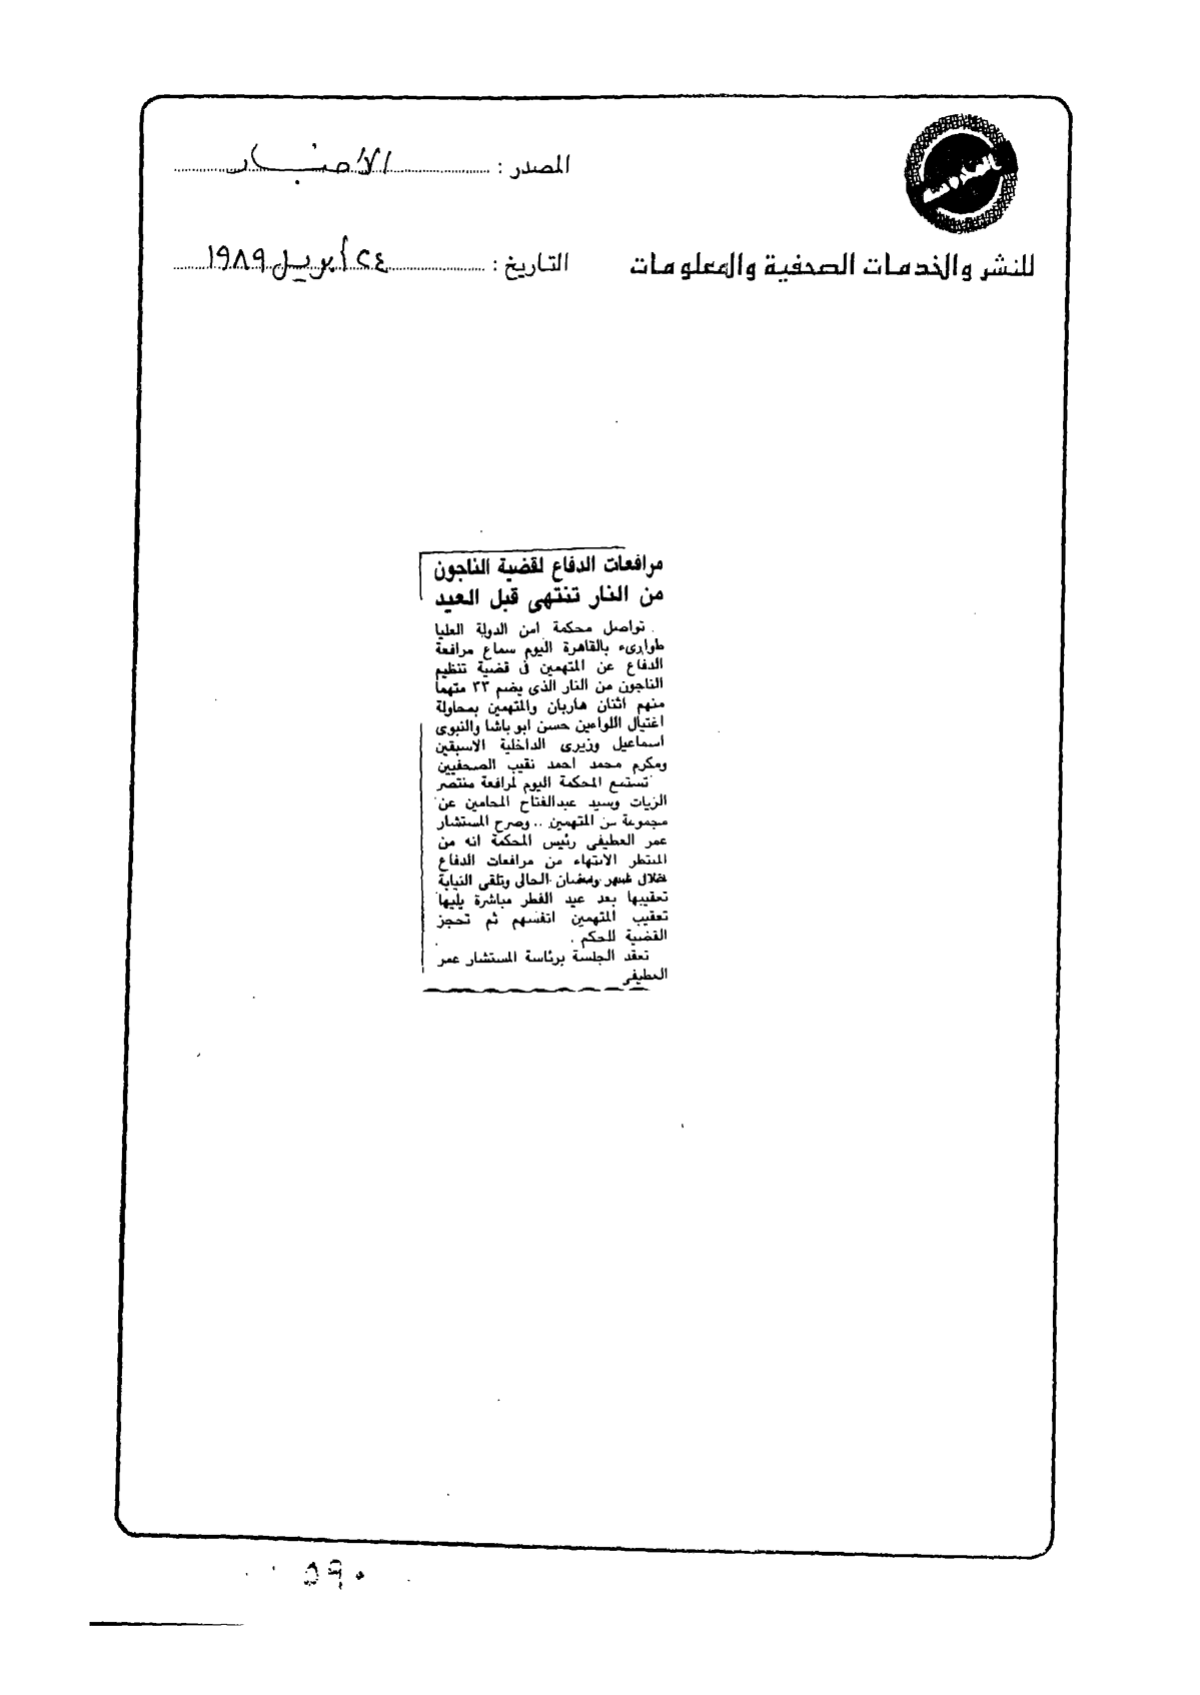 المصدر : الأخبار
للنشر والخدمات الصحفية والمعلومات
التاريخ : ٢٤ أبريل ١٩٨٩
مرافعات الدفاع لقضية الناجون
من النار تنتهى قبل العيد
تواصل محكمة امن الدولة العليا
طوارىء بالقاهرة اليوم سماع مرافعة
الدفاع عن المتهمين فى قضية تنظيم
الناجون من النار الذى يضم ٣٣ متهما
منهم اثنان هاربان والمتهمين بمحاولة
اغتيال اللواءين حسن ابو باشا والنبوى
اسماعيل وزيرى الداخلية الاسبقين
ومكرم محمد احمد نقيب الصحفيين
تستمع المحكمة اليوم لمرافعة منتصر
الزيات وسيد عبدالفتاح المحامين عن
مجموعة من المتهمين .. وصرح المستشار
عمر العطيفى رئيس المحكمة انه من
المنتظر الانتهاء من مرافعات الدفاع
خلال شهر رمضان الحالى وتلقى النيابة
تعقيبها بعد عيد الفطر مباشرة يليها
تعقيب المتهمين انفسهم ثم تحجز
القضية للحكم .
تعقد الجلسة برئاسة المستشار عمر
العطيفى
٥٩٠